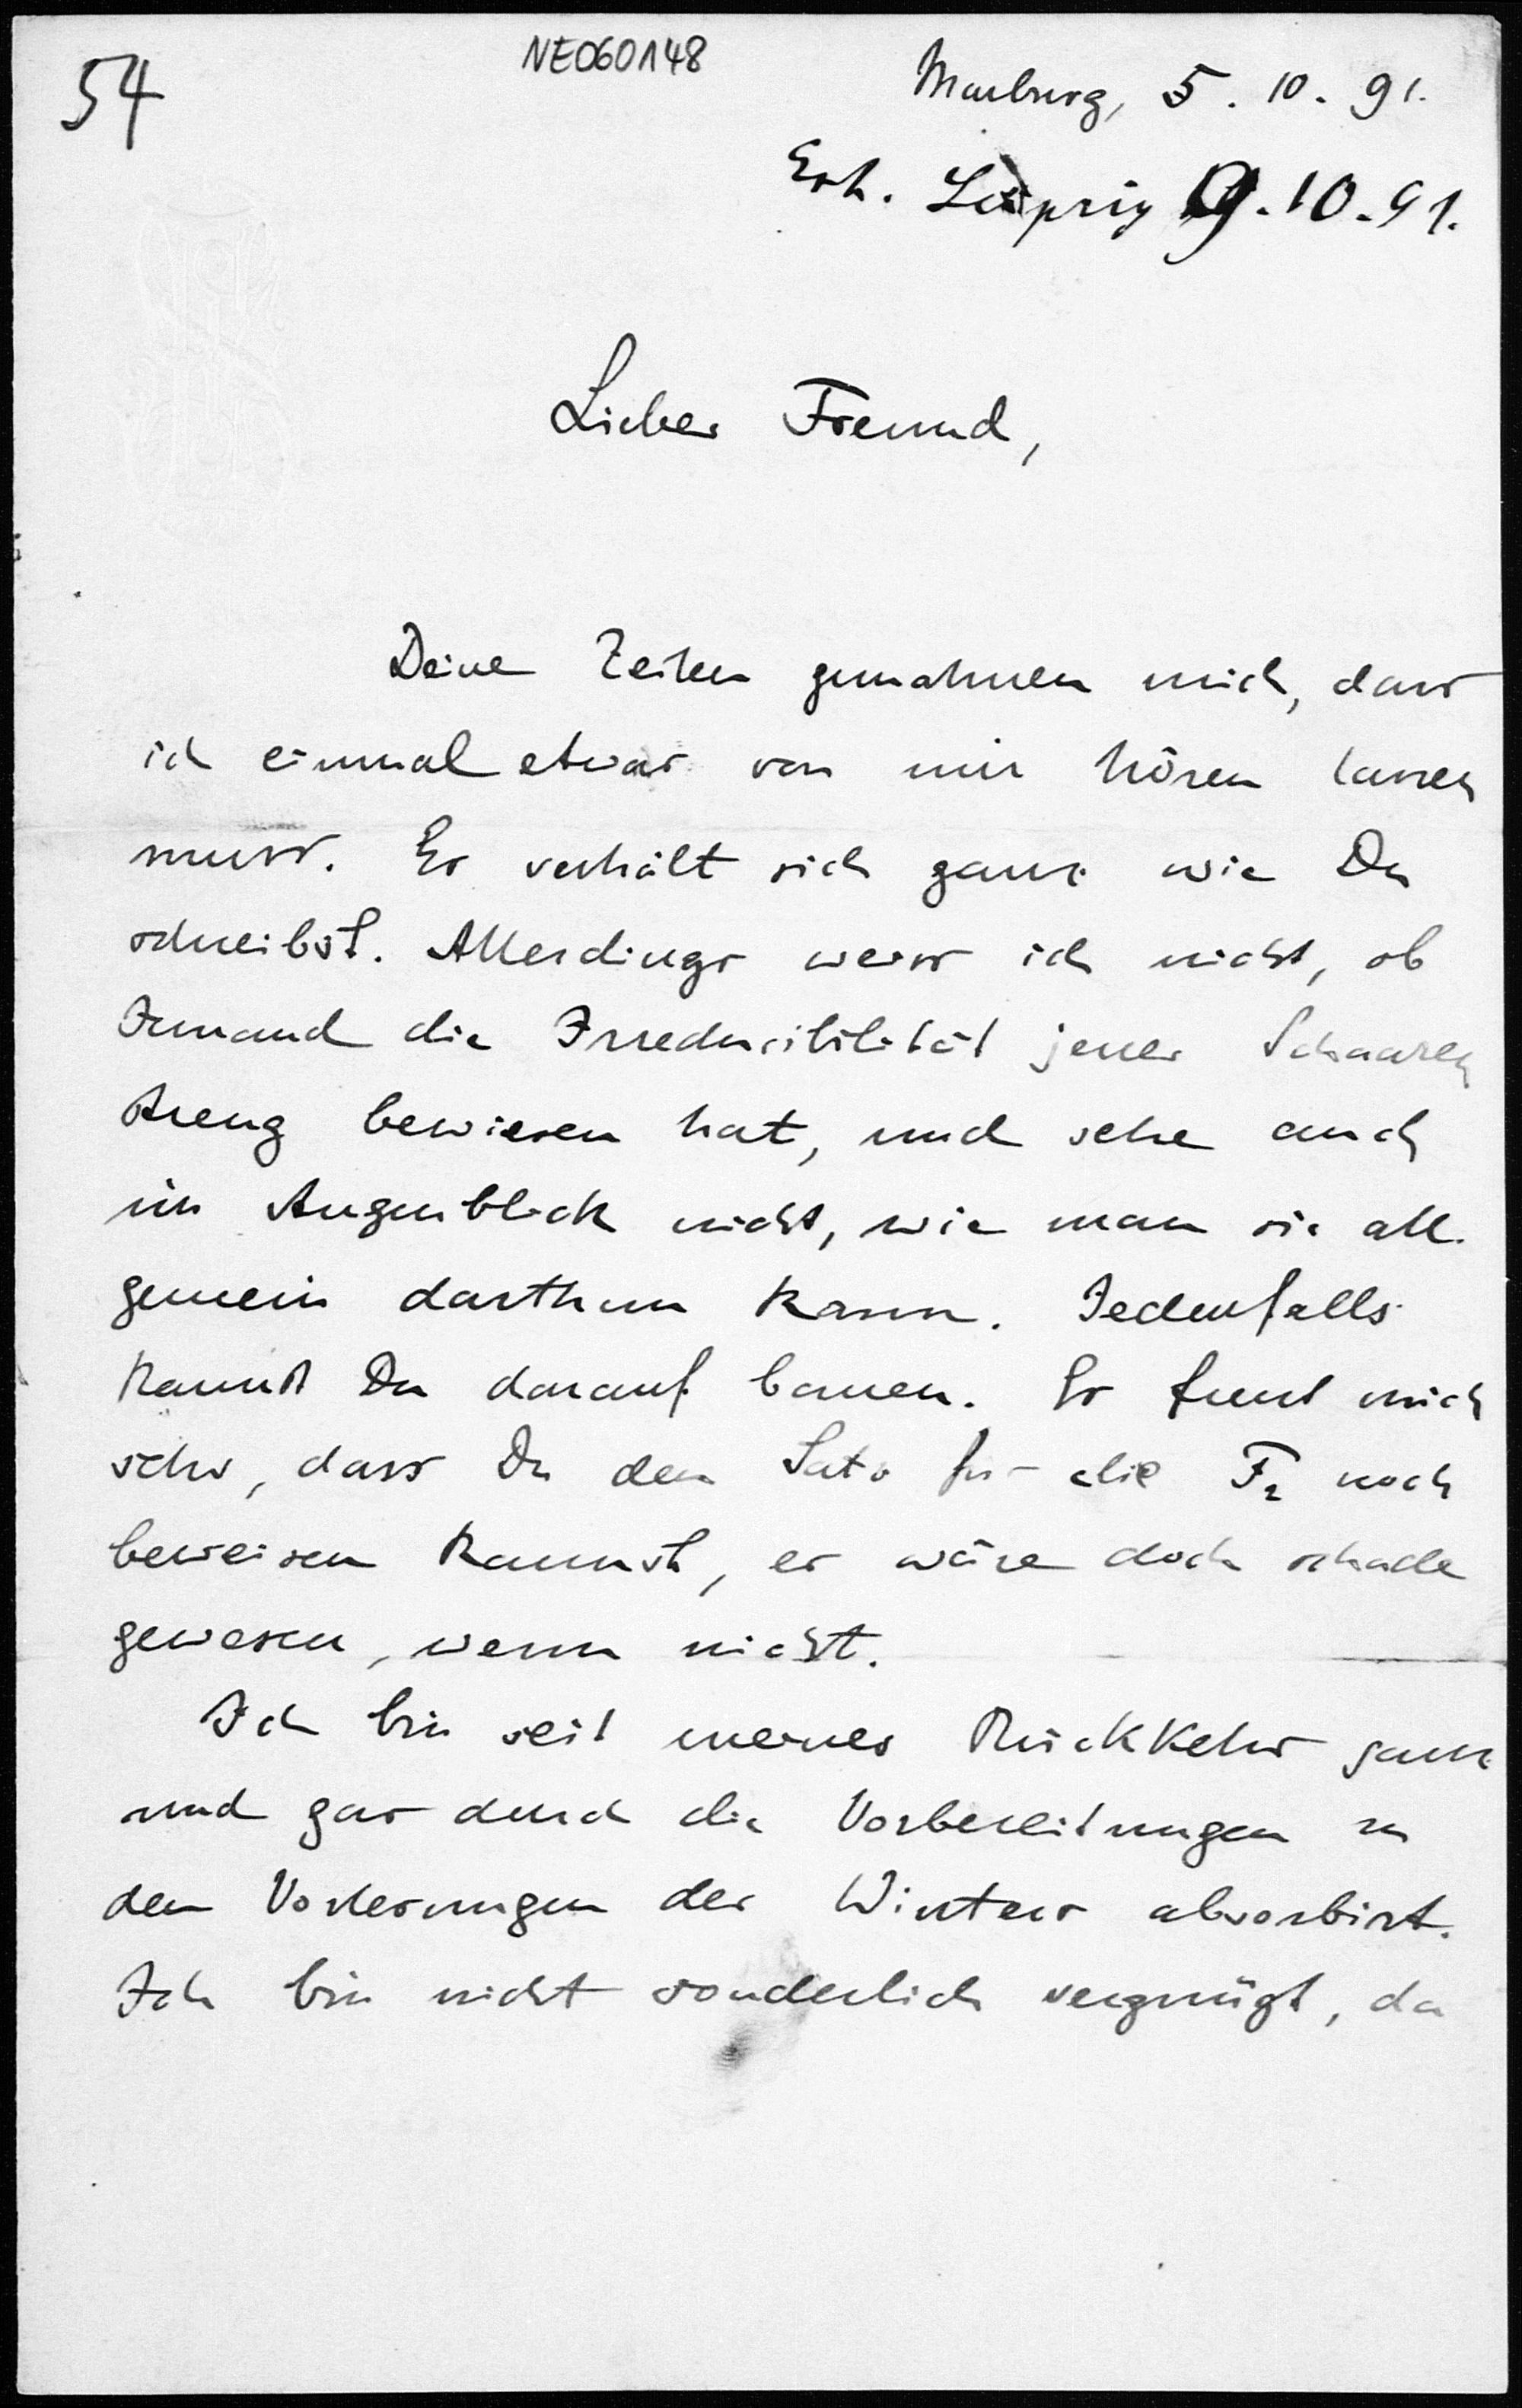 54
NE060148
Marburg, 5. 10. 91.
Erh. Leipzig 9.10.91.
Lieber Freund,
Deine Zeilen gemahnen mich, dass
ich einmal etwas von mir hören lassen
muss. Es verhält sich ganz wie Du
schreibst. Allerdings weiss ich nicht, ob
Jemand die Irreducibilität jener Schaaren
streng bewiesen hat, und sehe auch
im Augenblick nicht, wie man sie all-
gemein darthun kann. Jedenfalls
kannst Du darauf bauen. Es freut mich
sehr, dass Du den Satz für die F₂ noch
beweisen kannst, es wäre doch schade
gewesen, wenn nicht.
Ich bin seit meiner Rückkehr ganz
und gar durch die Vorbereitungen zu
den Vorlesungen des Winters absorbirt.
Ich bin nicht sonderlich vergnügt, da